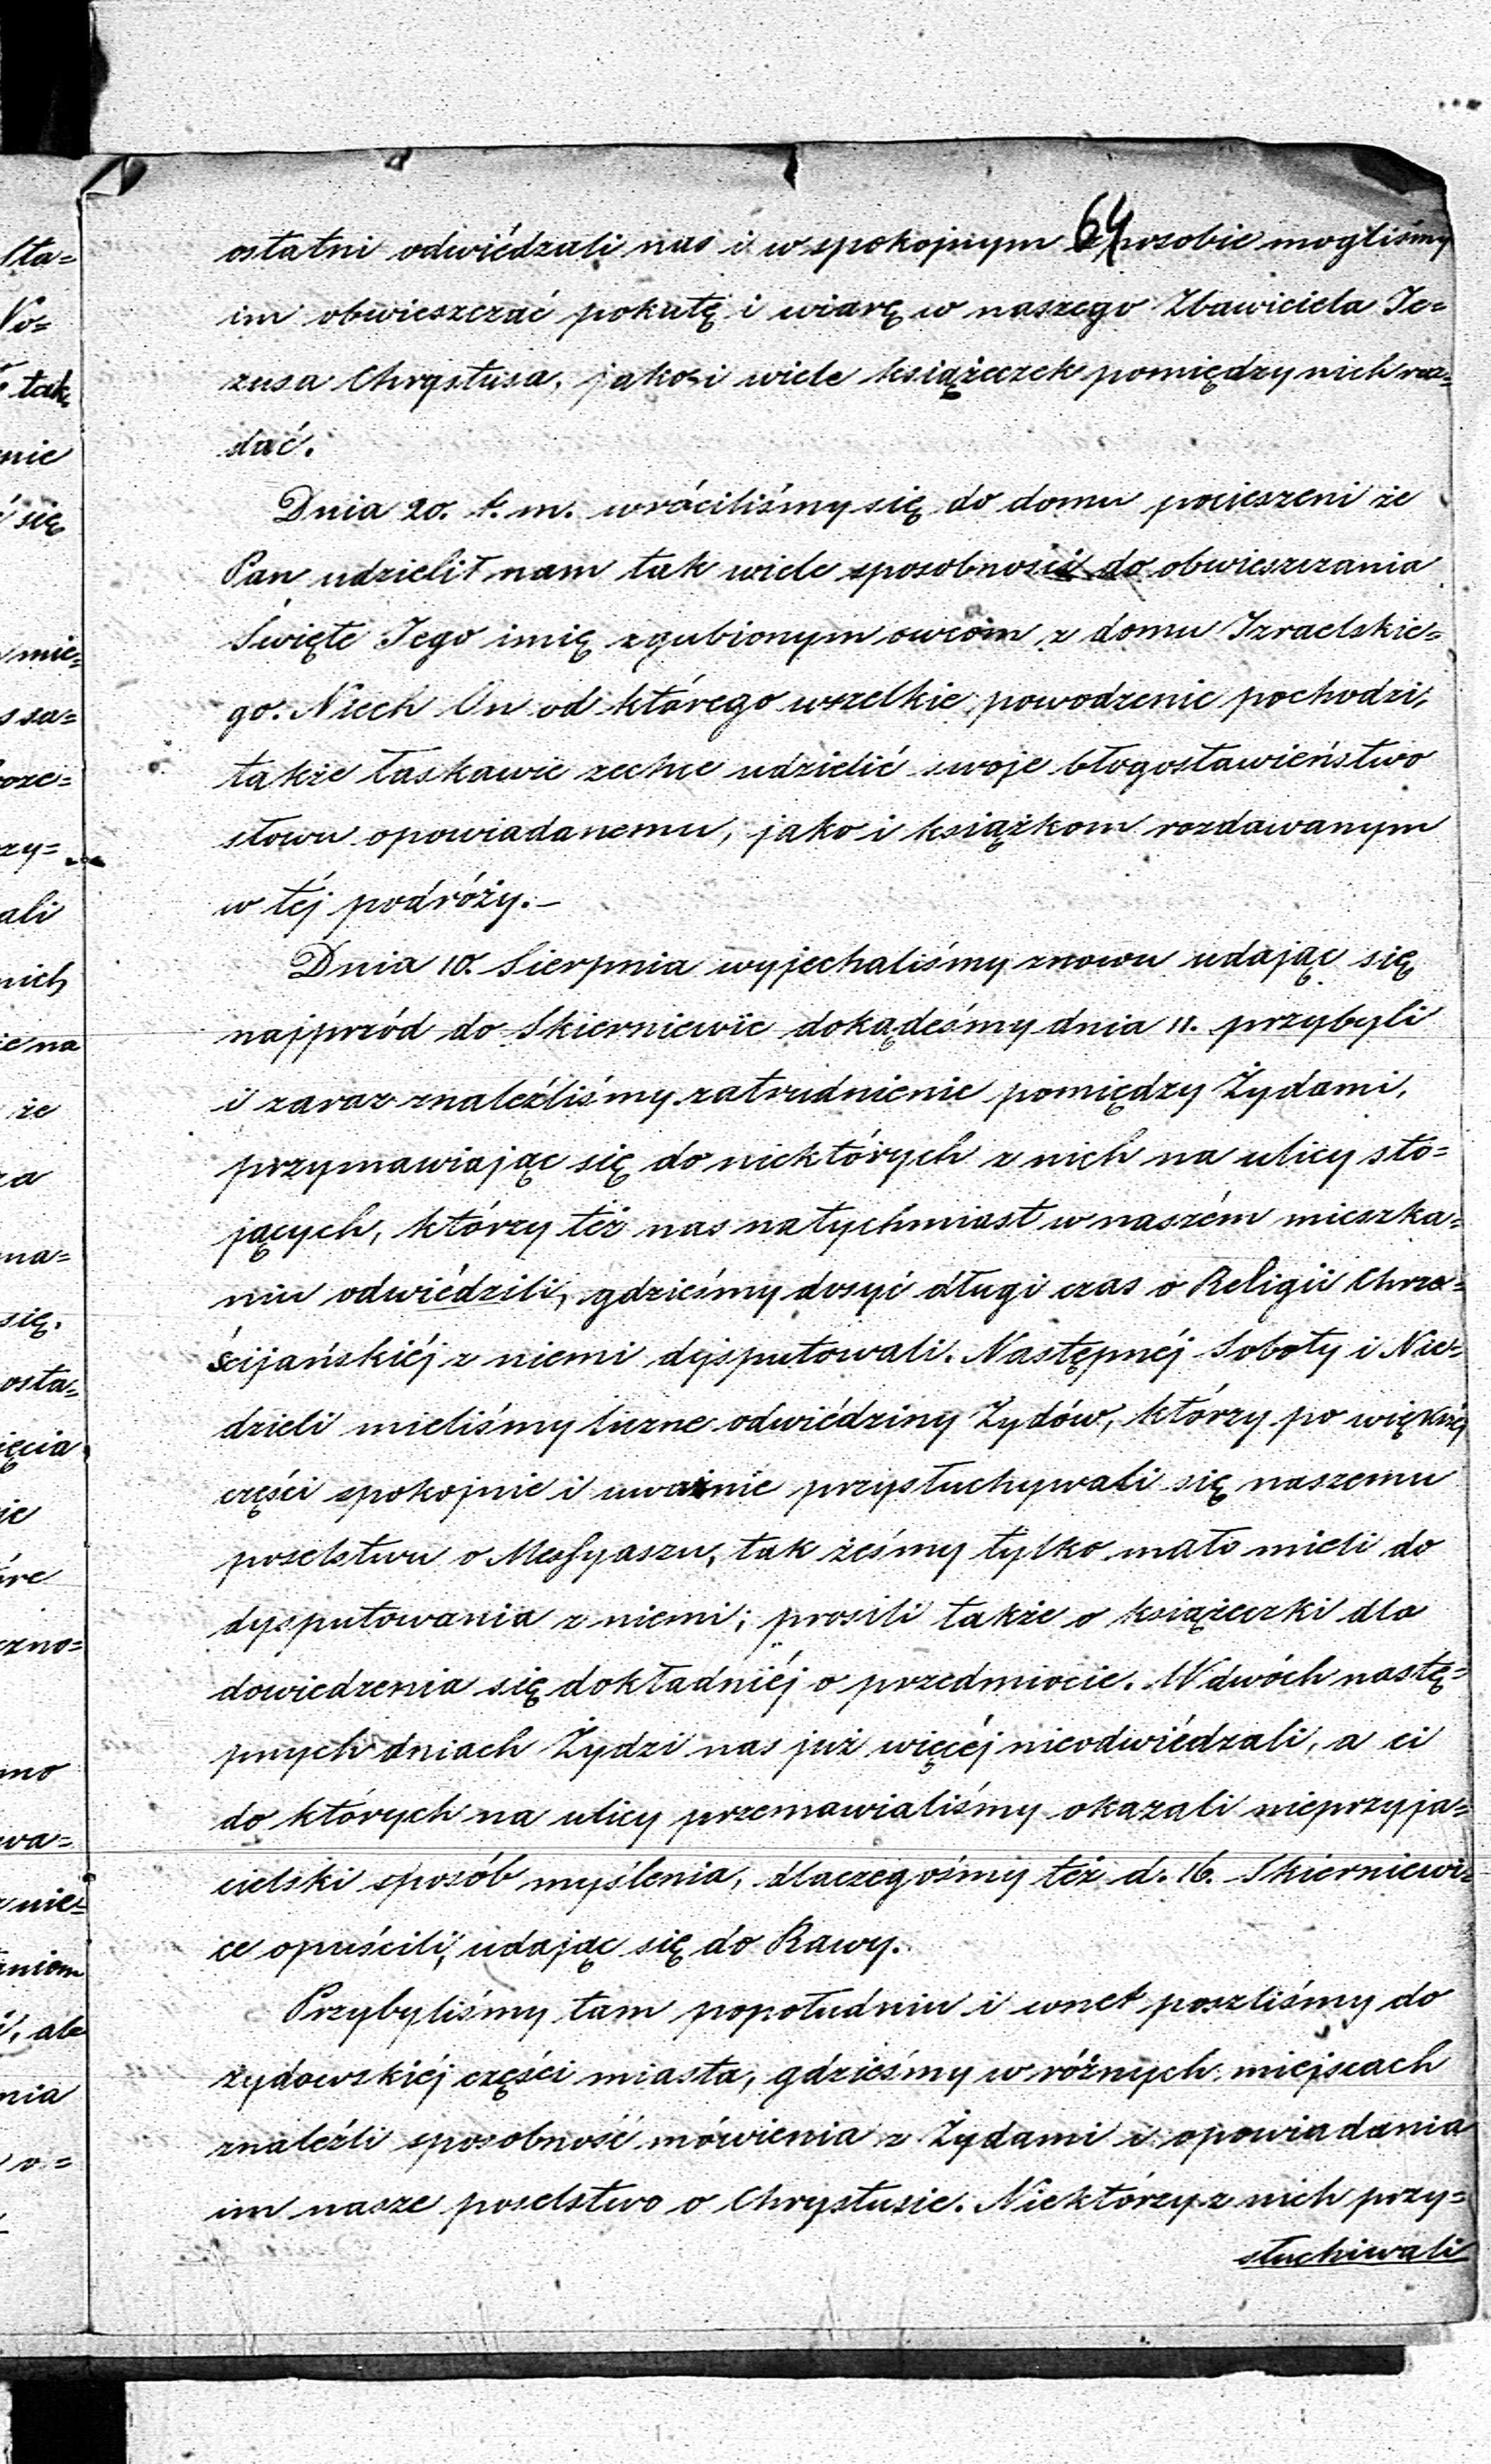 64
ostatni odwiédzali nas i w spokojnym sposobie mogliśmy
im obwieszczać pokutę i wiarę w naszego Zbawiciela Je=
zusa Chrystusa, jako i wiele książeczek pomiędzy nich roz=
dać.
Dnia 20. t. m. wróciliśmy się do domu pocieszeni że
Pan udzielił nam tak wiele sposobności do obwieszczania
Święte Jego imię zgubionym owcom z domu Izraelskie=
go. Niech On od którego wszelkie powodzenie pochodzi,
także łaskawie zechce udzielić swoje błogosławieństwo
słowu opowiadanemu, jako i książkom rozdawanym
w téj podróży.—
Dnia 10. Sierpnia wyjechaliśmy znowu udając się
najprzód do Skierniewic dokądeśmy dnia 11. przybyli
i zaraz znaleźliśmy zatrudnienie pomiędzy Żydami,
przymawiając się do niektórych z nich na ulicy sto=
jących, którzy też nas natychmiast w naszém mieszka=
niu odwiédzili, gdzieśmy dosyć długi czas o Religii Chrze=
ścijańskiéj z niemi dysputowali. Następnéj Soboty i Nie=
dzieli mieliśmy liczne odwiédziny Żydów, którzy po większéj
części spokojnie i uważnie przysłuchywali się naszemu
poselstwu o Messyaszu, tak żeśmy tylko mało mieli do
dysputowania z niemi; prosili także o książeczki dla
dowiedzenia się dokładniéj o przedmiocie. W dwóch nastę=
pnych dniach Żydzi nas już więcéj nieodwiédzali, a ci
do których na ulicy przemawialiśmy okazali nieprzyja=
cielski sposób myślenia, dlaczegośmy też d. 16. Skierniewi=
ce opuścili, udając się do Rawy.
Przybyliśmy tam popołudniu i wnet poszliśmy do
żydowskiéj części miasta, gdzieśmy w różnych miejscach
znaleźli sposobność mówienia z Żydami i opowiadania
im nasze poselstwo o Chrystusie. Niektórzy z nich przy=
słuchiwali